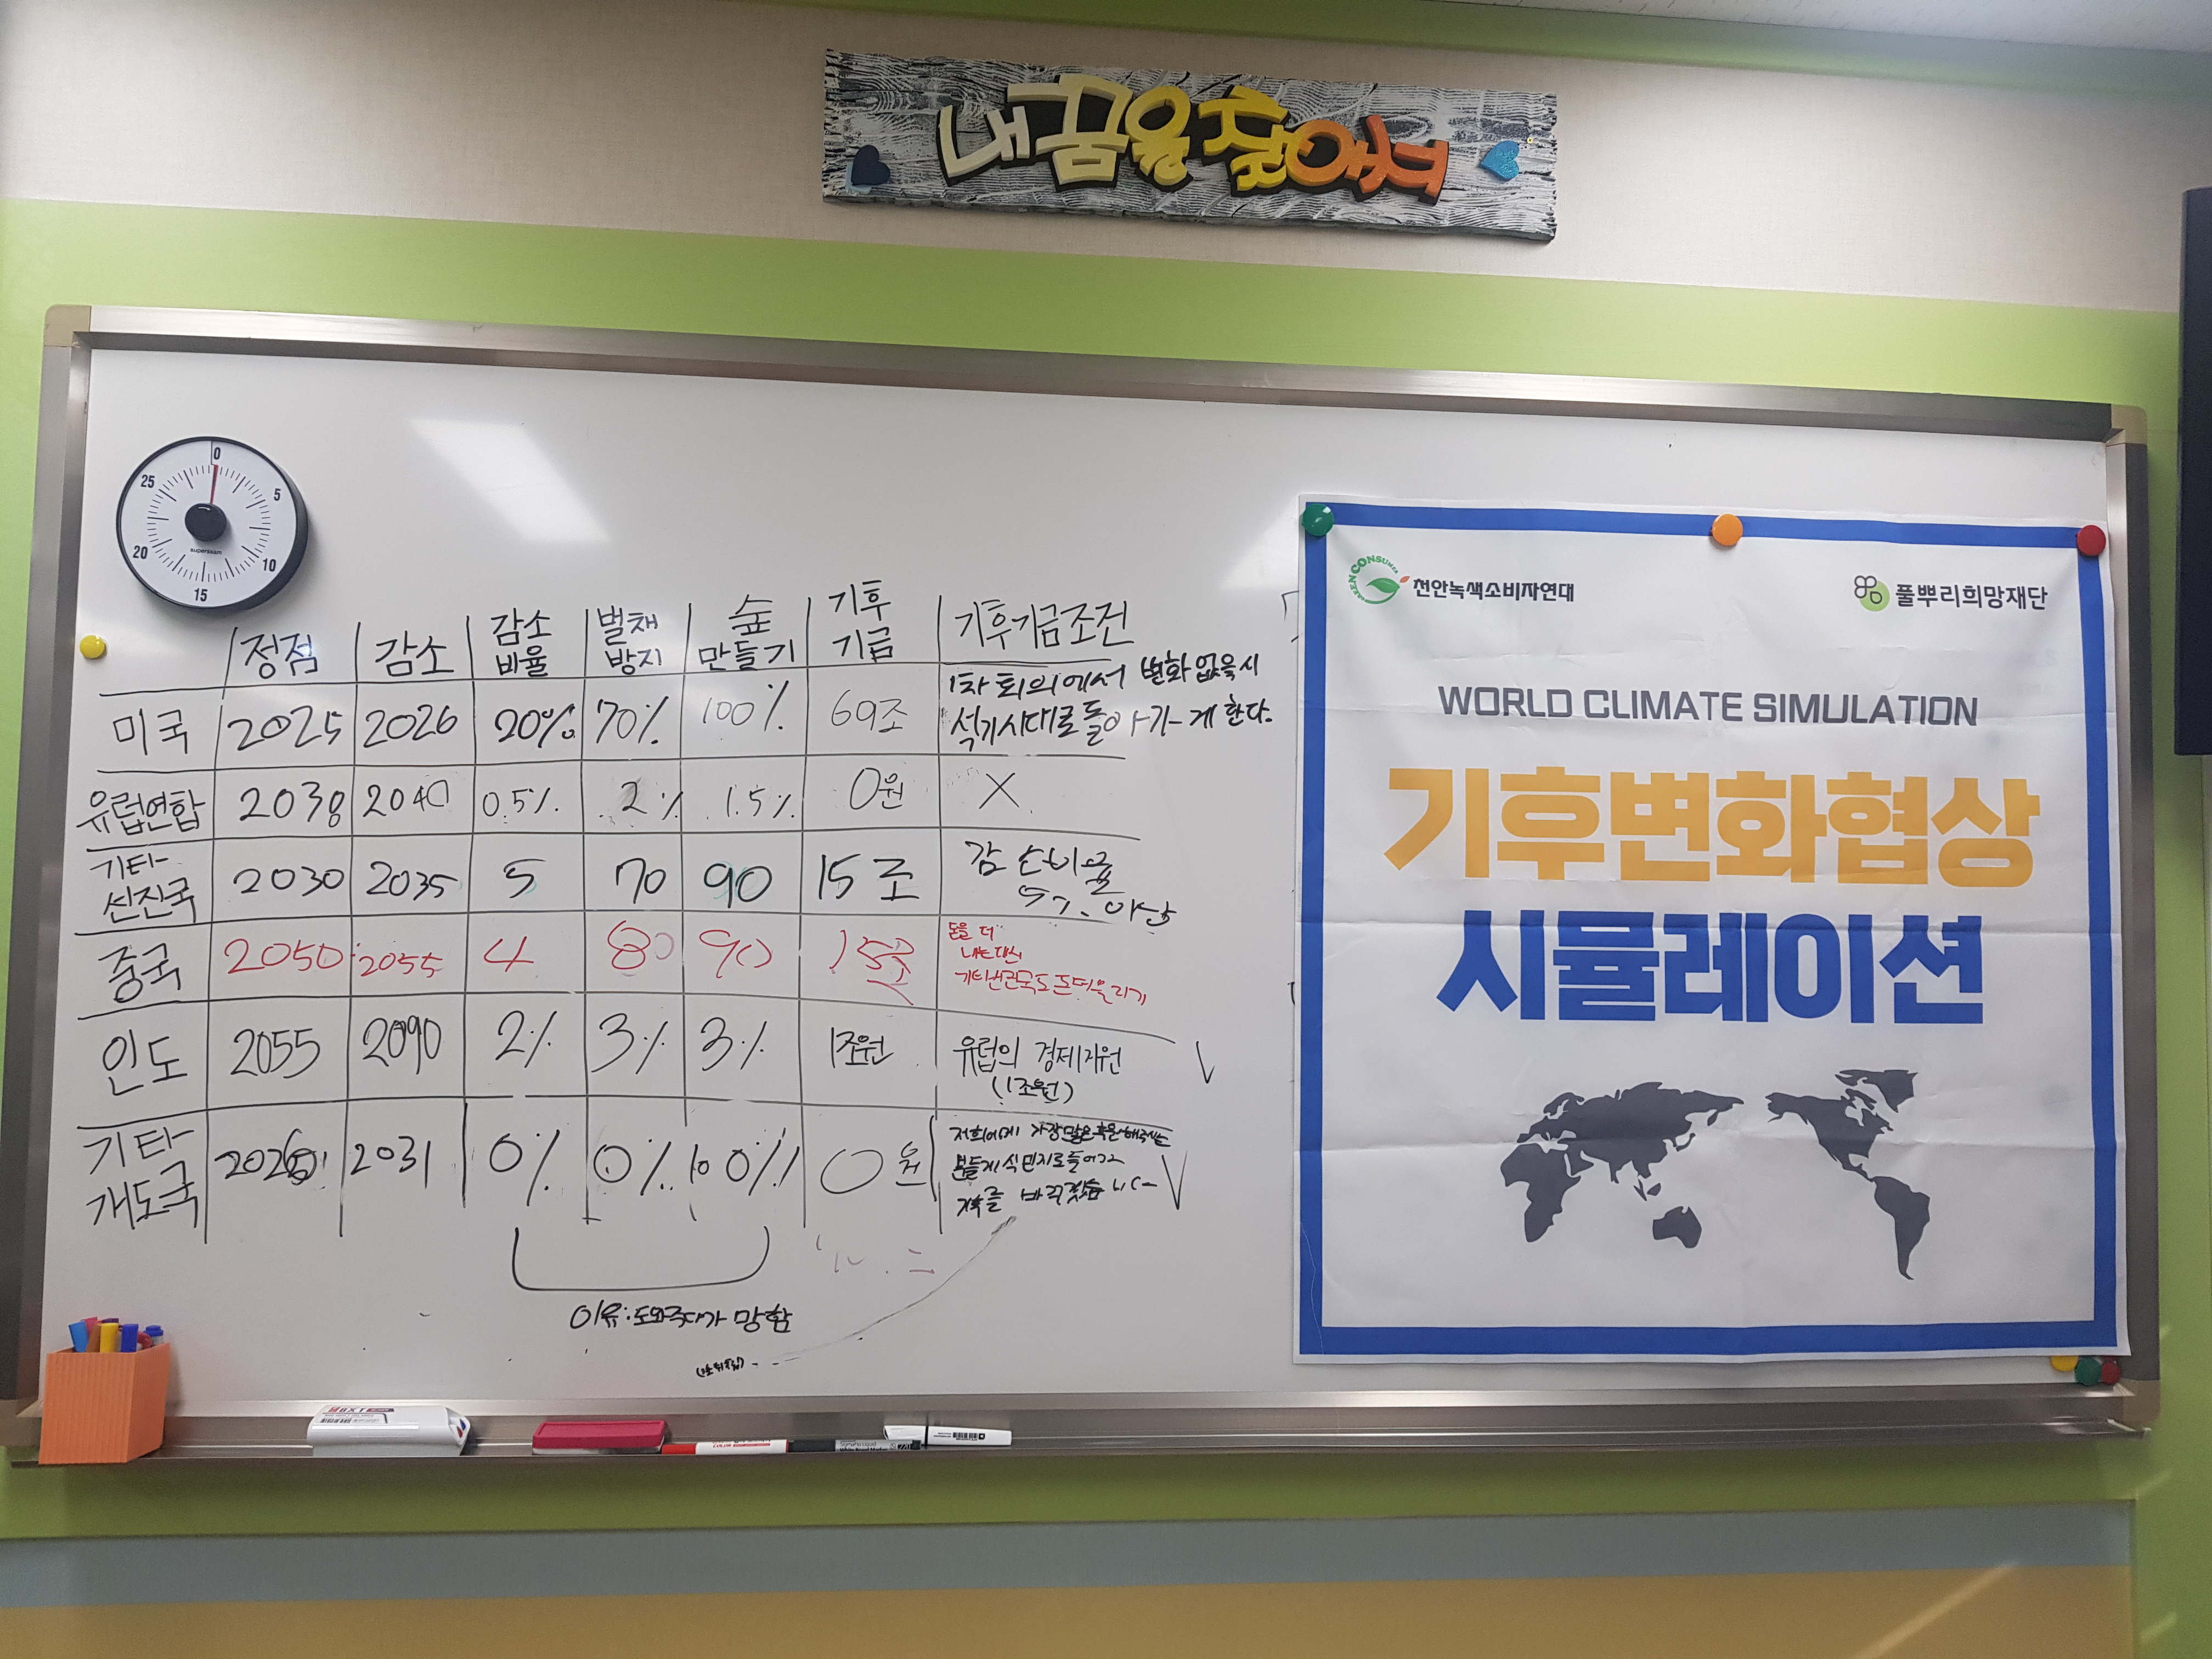 내꿈을 찾아서
0
5
10
15
20
25
supersam
GREEN CONSUMER
천안녹색소비자연대
풀뿌리희망재단
WORLD CLIMATE SIMULATION
기후변화협상
시뮬레이션
정점 감소 감소 비율 벌채 방지 숲 만들기 기후 기금 기후기금조건
미국 2025 2026 20% 70% 100% 69조 1차 회의에서 변화 없을시
석기시대로 돌아가게 한다.
유럽연합 2038 2040 0.5% 2% 1.5% 0원 X
기타 선진국 2030 2035 5 70 90 15조 감소비율
5% 이상
중국 2050 2055 4 80 90 15조 돈을 더
내는대신
기타선진국도 돈더올리기
인도 2055 2090 2% 3% 3% 1조원 유럽의 경제지원
(1조원)
기타 개도국 2031 0% 0% 100% 0원 저희에게 가장많은후원해주는
분들게 식민지로들어가
바치겠습니다
이유: 도와주다가 망함